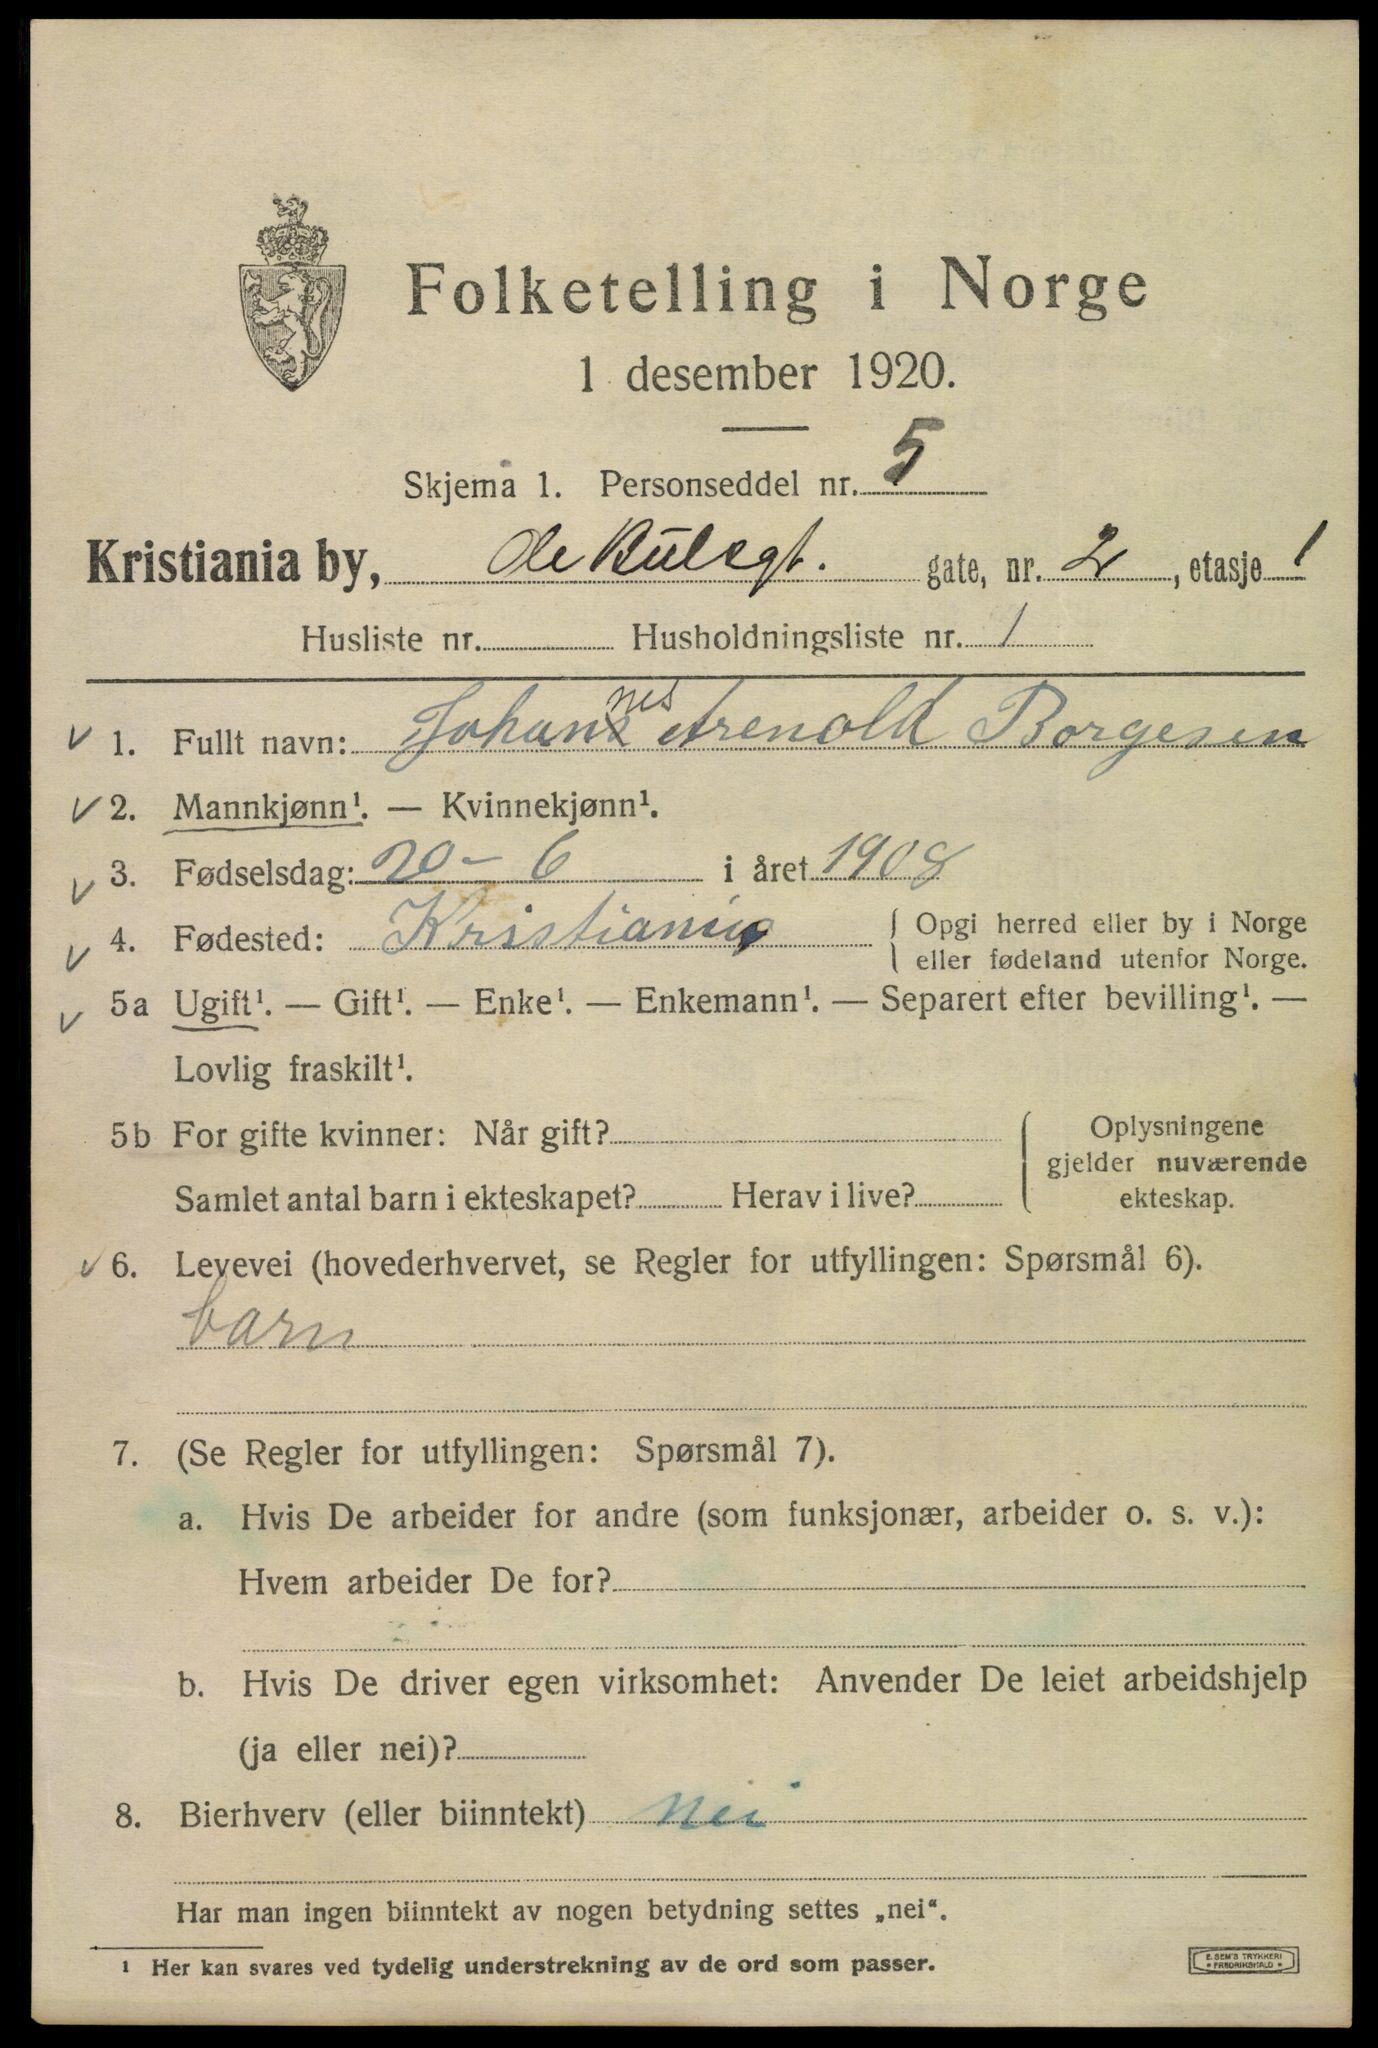 Folketelling i Norge
1 desember 1920.
Skjema 1. Personseddel nr. 5
Kristiania by, de Bulsgt. gate, nr. 2, etasje 1
Husliste nr. Husholdningsliste nr. 1
1. Fullt navn: Johannes Arenold Borgesen
2. Mannkjønn¹. — Kvinnekjønn¹.
3. Fødselsdag: 20 - 6 i året 1908
4. Fødested: Kristiania { Opgi herred eller by i Norge
eller fødeland utenfor Norge.
5a Ugift¹. — Gift¹. — Enke¹. — Enkemann¹. — Separert efter bevilling¹. —
Lovlig fraskilt¹.
5b For gifte kvinner: Når gift? { Oplysningene
gjelder nuværende
Samlet antal barn i ekteskapet? Herav i live? ekteskap.
6. Levevei (hovederhvervet, se Regler for utfyllingen: Spørsmål 6).
barn
7. (Se Regler for utfyllingen: Spørsmål 7).
a. Hvis De arbeider for andre (som funksjonær, arbeider o. s. v.):
Hvem arbeider De for?
b. Hvis De driver egen virksomhet: Anvender De leiet arbeidshjelp
(ja eller nei)?
8. Bierhverv (eller biinntekt) Nei
Har man ingen biinntekt av nogen betydning settes „nei“.
¹ Her kan svares ved tydelig understrekning av de ord som passer.
E. SEM'S TRYKKERI
FREDRIKSHALD